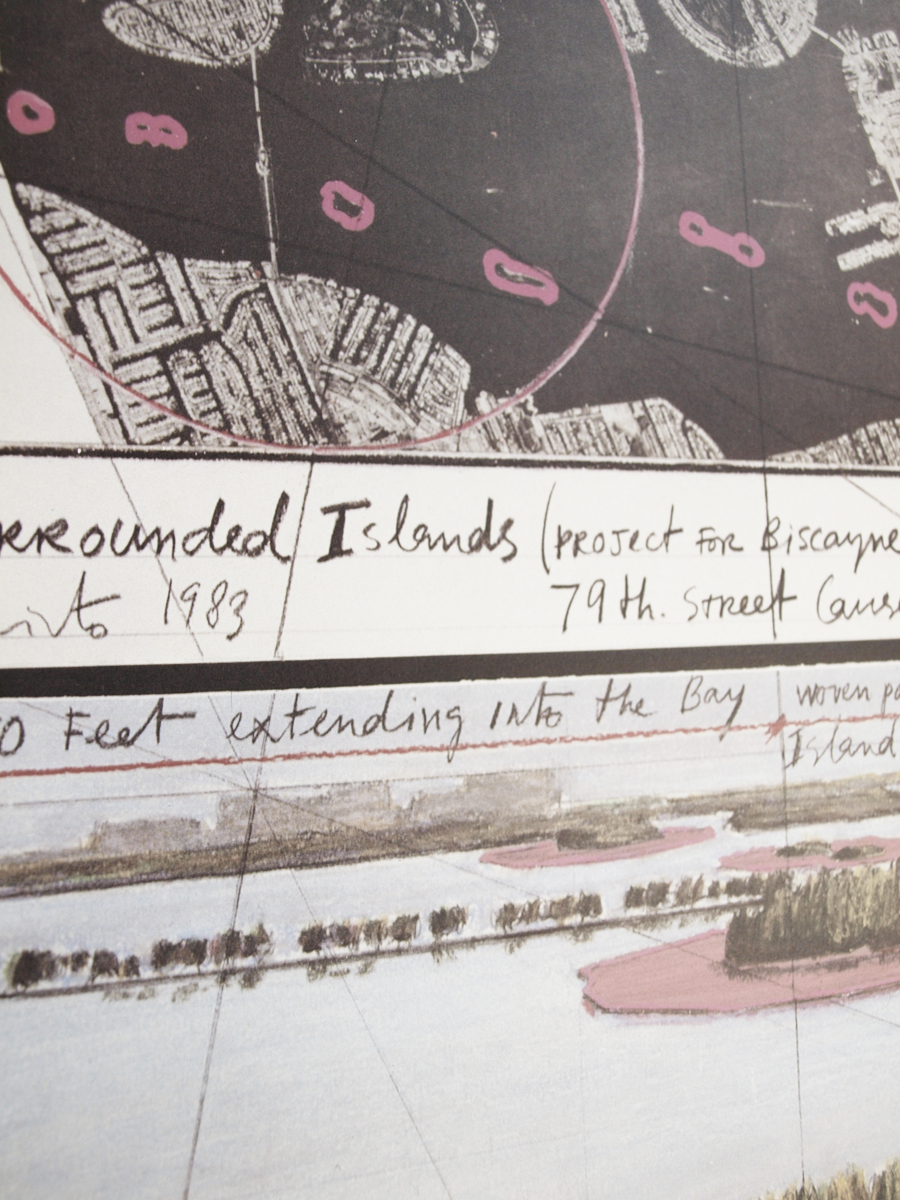 rrounded Islands (PROJECT FOR Biscayne
1983 79th. Street Caus
0 Feet extending into the Bay woven po
Island